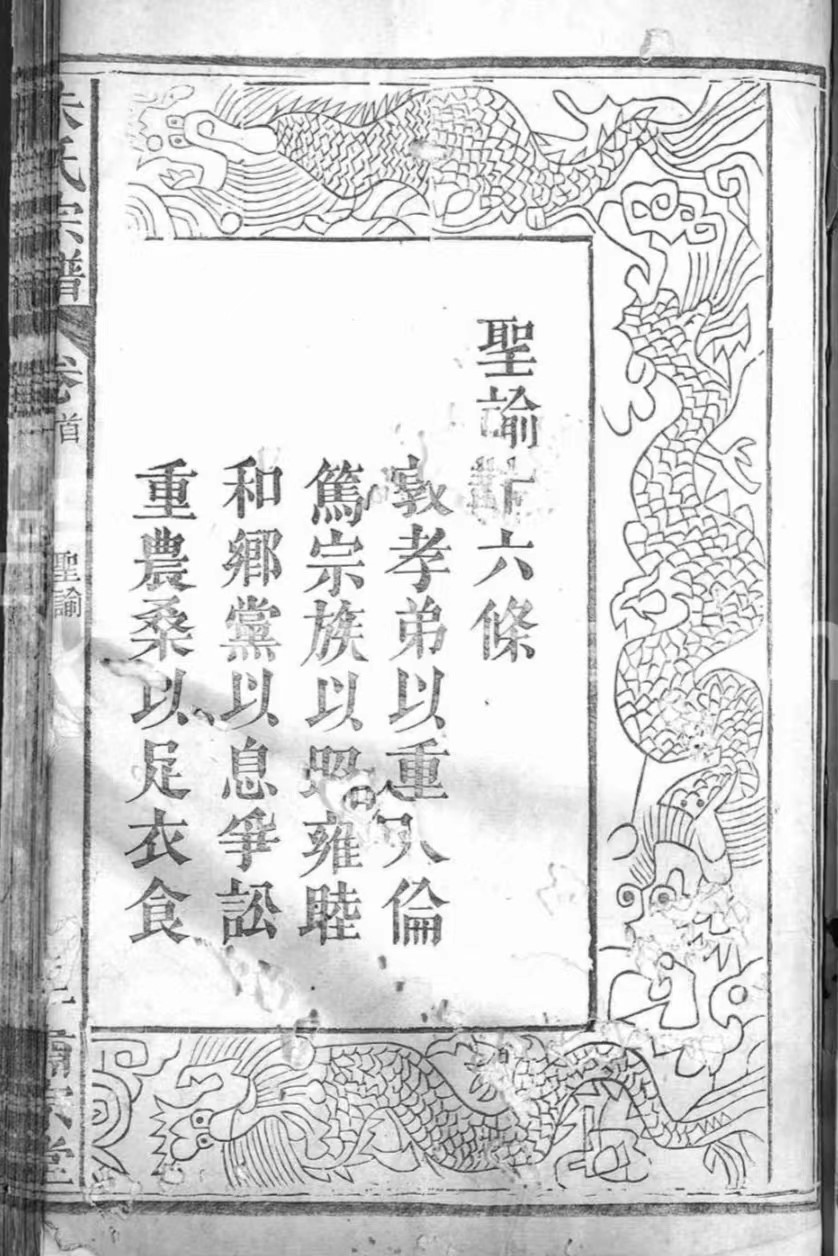 聖諭十六條
敦孝弟以重人倫
篤宗族以昭雍睦
和鄉黨以息爭訟
重農桑以足衣食
氏宗譜
卷首
聖諭
堂